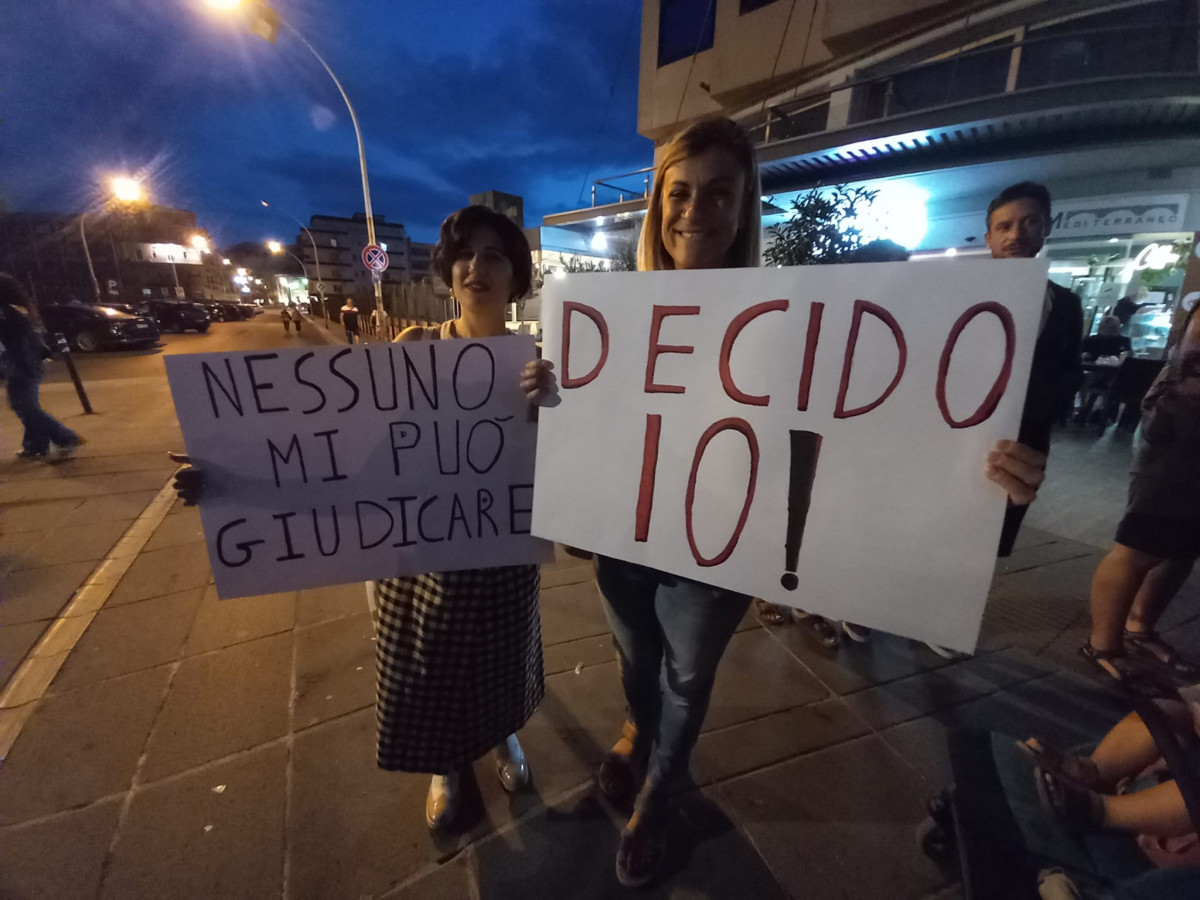 NESSUNO
MI PUÒ
GIUDICARE
DECIDO
IO!
MEDITERRANEO